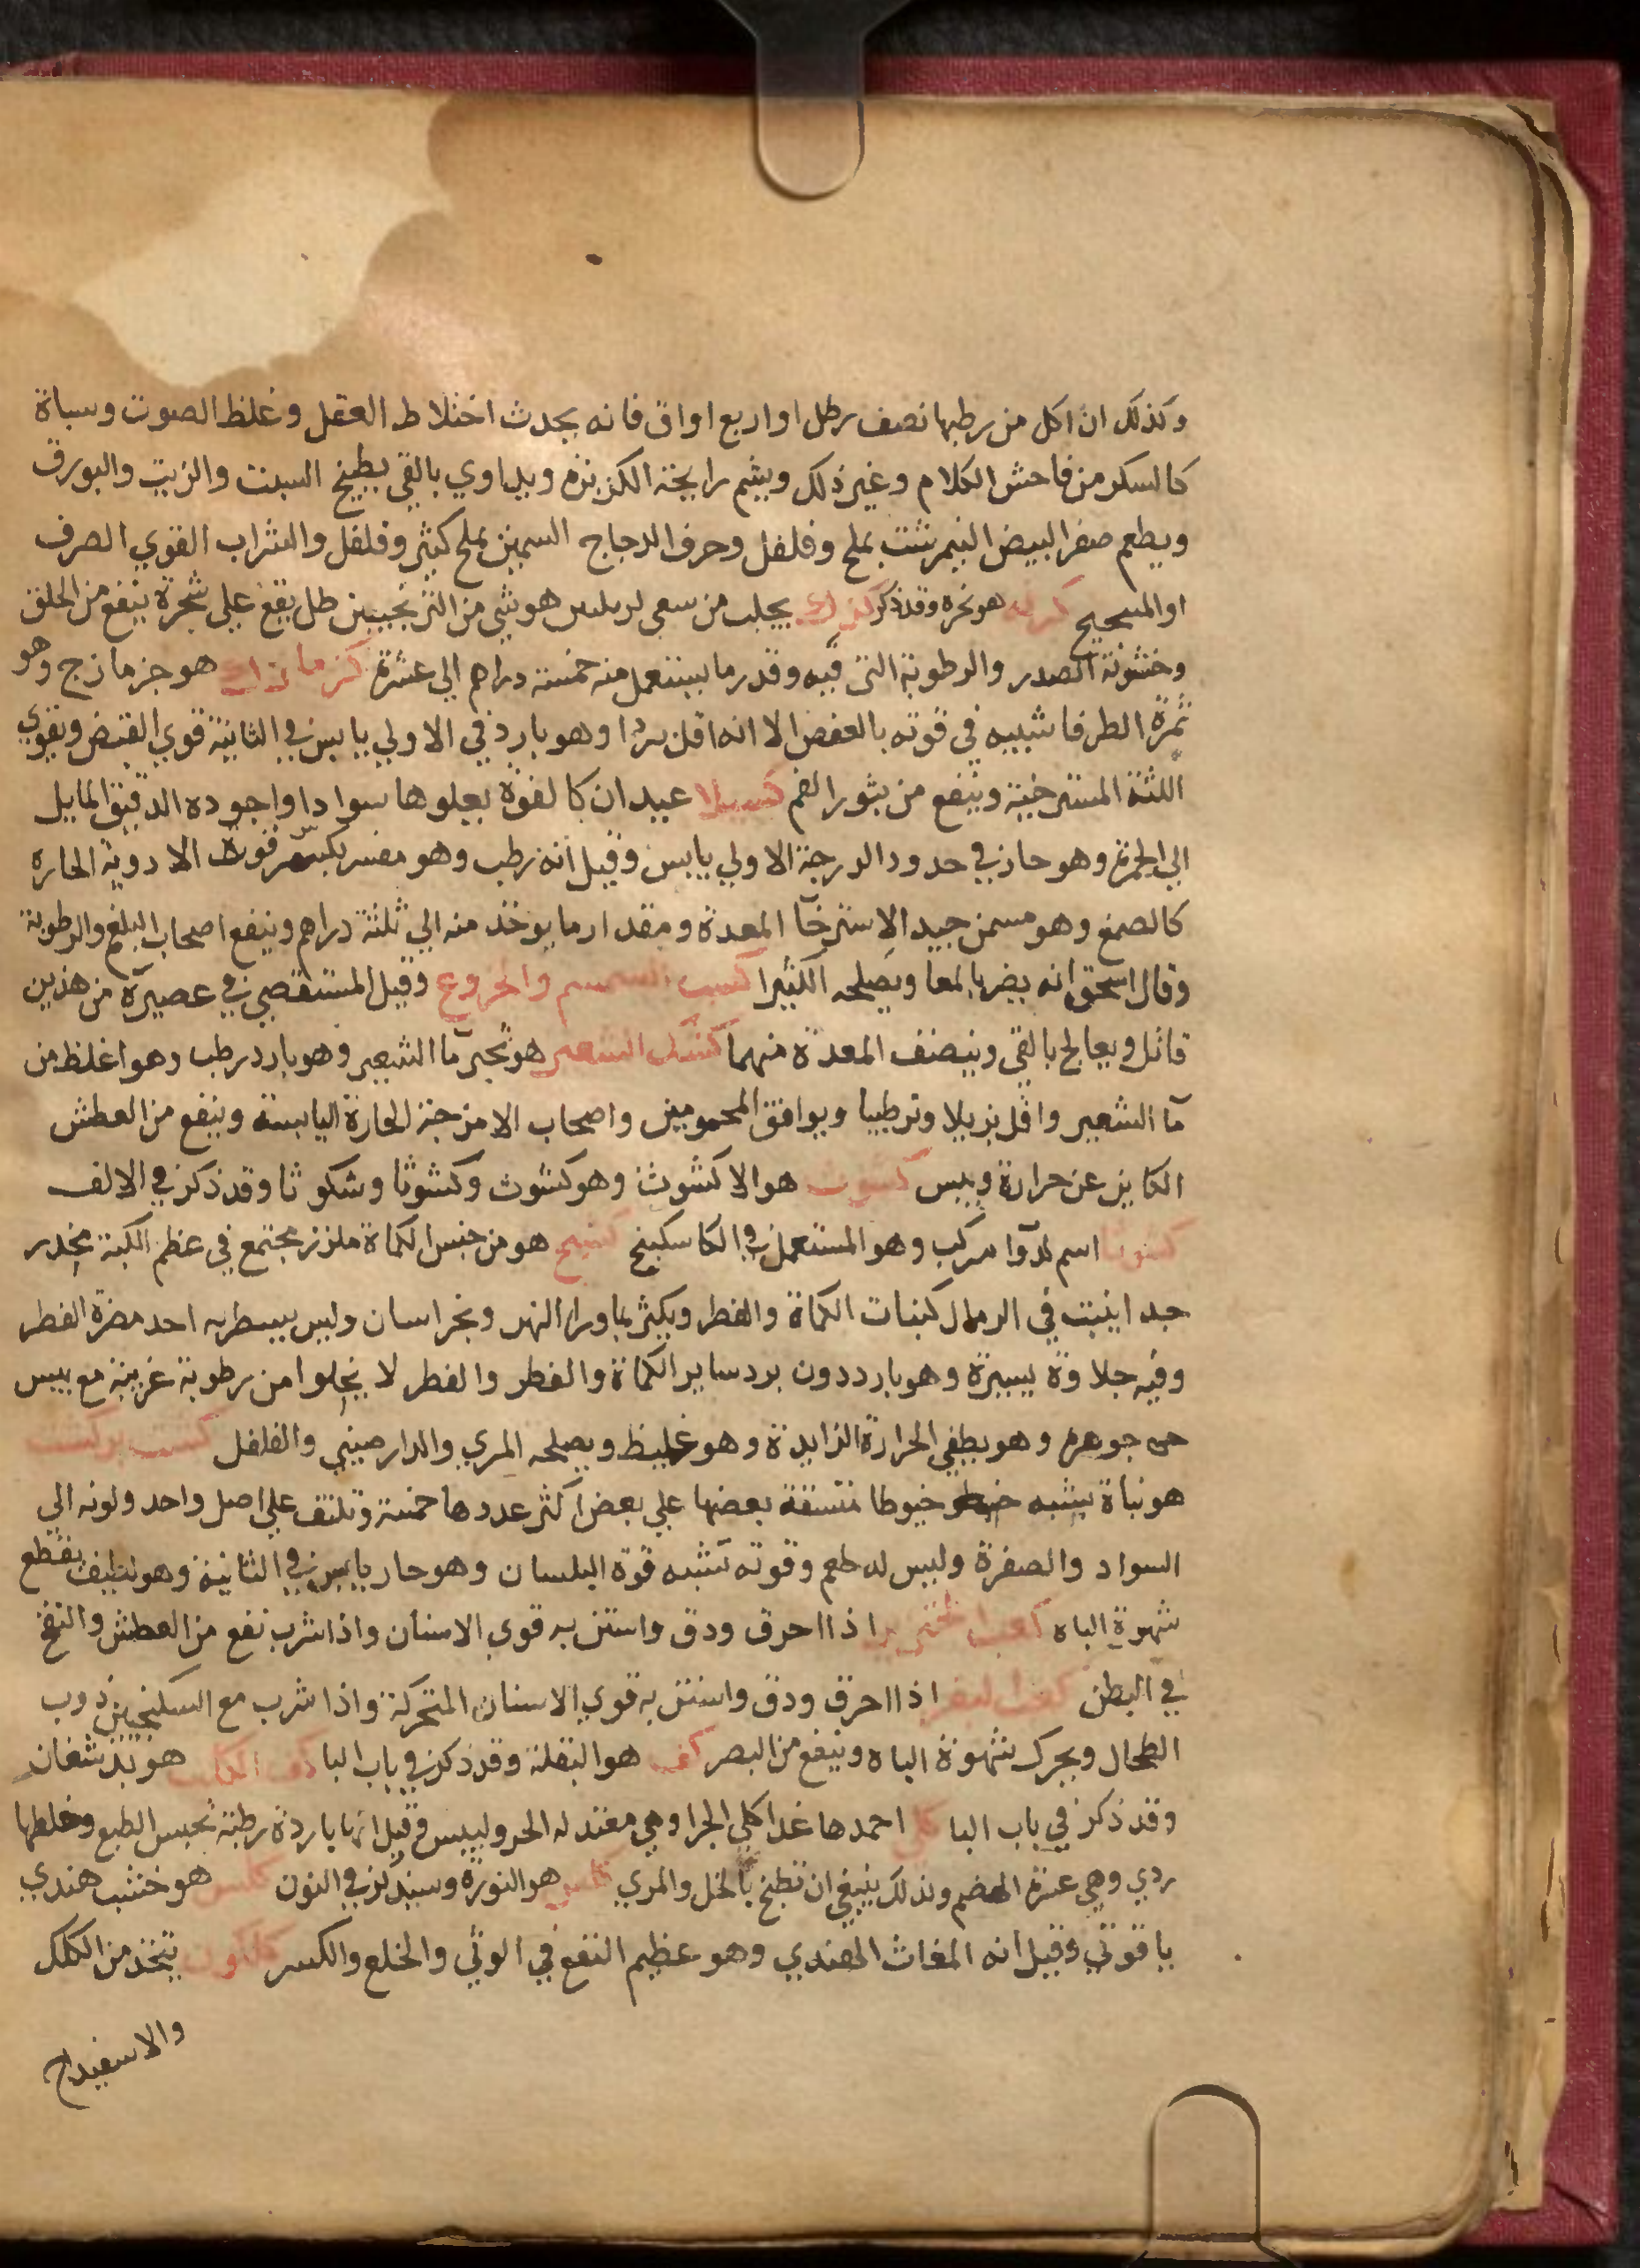 وكذلك ان اكل من رطبها نصف رطل او اربع اواق فانه يحدث اختلاط العقل وغلظ الصوت وسباة
كالسكر من فاحش الكلام وغير ذلك ويشم رايحة الكزبزه ويداوي بالقي بطبيخ السبنت والزيت والبورق
ويطعم صفرا البيض النيمرشت بملح وفلفل وحرف الدجاج السمين بملح كثير وفلفل والشراب القوي الصرف
او المسحيح كرمه هو نخره وقد ذكر يجلب من هو شي من الترنجبين طل يقع علي شجرة ينفع من الحلق
وخشونة الصدر والرطوبة التي فيه وقدر ما يستعمل منه خمسة دراهم الي عشرة كزمازك هو جزمازج وهو
ثمرة الطرفا شبيه في قوته بالعفص الا انه اقل بردا وهو بارد في الاولي يابس في الثانية قوي القبض ويقوي
اللثة المسترخية وينفع من بثور الفم كسيلا عيدان كالفوة يعلوها سوادا واجوده الدقيق المايل
الي الحمرة وهو حار في حدود الدرجة الاولي يابس وقيل انه رطب وهو مفسر بكسر قوة الادوية الحاره
كالصمغ وهو مسمن جيد الاسترخآ المعدة ومقدار ما يوخذ منه الي ثلثة دراهم وينفع اصحاب البلغم والرطوبة
وقال اسحق انه يضر بالمعا ويصلحه الكثيرا كسب السمسم والخروع وقيل المستقصي في عصيره من هذين
قاتل ويعالج بالقي وينصف المعدة منهما كشك الشعير هو ثجير مآ الشعير وهو بارد رطب وهو اغلظ من
مآ الشعير واقل نزيلا وترطيبا ويوافق المحمومين واصحاب الامزجة الحارة اليابسة وينفع من العطش
الكاين عن حرارة ويبس كشوث هو الاكشوث وهو كشوث وكشوثا وشكوثا وقد ذكر في الالف
كشوثا اسم لدوآ مركب وهو المستعمل في الكاسكبينج كشنج هو من جنس الكماة ملزز مجتمع في عظم الكبة يخدر
جدا ينبت في الرمال كنبات الكماة والفطر ويكثر بماورا النهر وبخراسان وليس بيسطربه احد مضرة الفطر
وفيه حلاوة يسيرة وهو بارد دون برد ساير الكماة والفطر والفطر لا يخلوا من رطوبة غريبة مع يبس
جوهره وهو يطفي الحرارة الزايدة وهو غليظ ويصلحه المري والدارصيني والفلفل كشت بركشت
هو نباة يشبه خيوطا متسقة بعضها علي بعض اكثر عددها خمسة وتلتف علي اصل واحد ولونه الي
السواد والصفرة وليس له طعم وقوته تشبه قوة البلسان وهو حار يابس في الثانية وهو لطيف يقطع
شهوة الباه كعب الخنزير اذا احرق ودق واستن به قوي الاسنان واذا شرب نفع من العطش والنفخ
في البطن كعب البقر اذا احرق ودق واستن به قوي الاسنان المتحركة واذا شرب مع السكنجبين ذوب
الطحال ويحرك شهوة الباه وينفع من البصر كف هو البقلة وقد ذكر في باب البا كف الكلب هو بدشغان
وقد ذكر في باب البا كلي احمدها غدا كلي الجرا وهي معتدله الحر ولييس وقيل انها باردة رطبة تحبس الطبع وخلطها
ردي وهي عسرة الهضم ولذلك ينبغي ان تطبخ بالخل والمري كلس هو النورة وسيذكر في النون هو خشب هندي
ياقوتي وقيل انه المغاث الهندي وهو عظيم النفع في الوثي والخلع والكسر كلكون يتخذ من الكلك
والاسفيداج